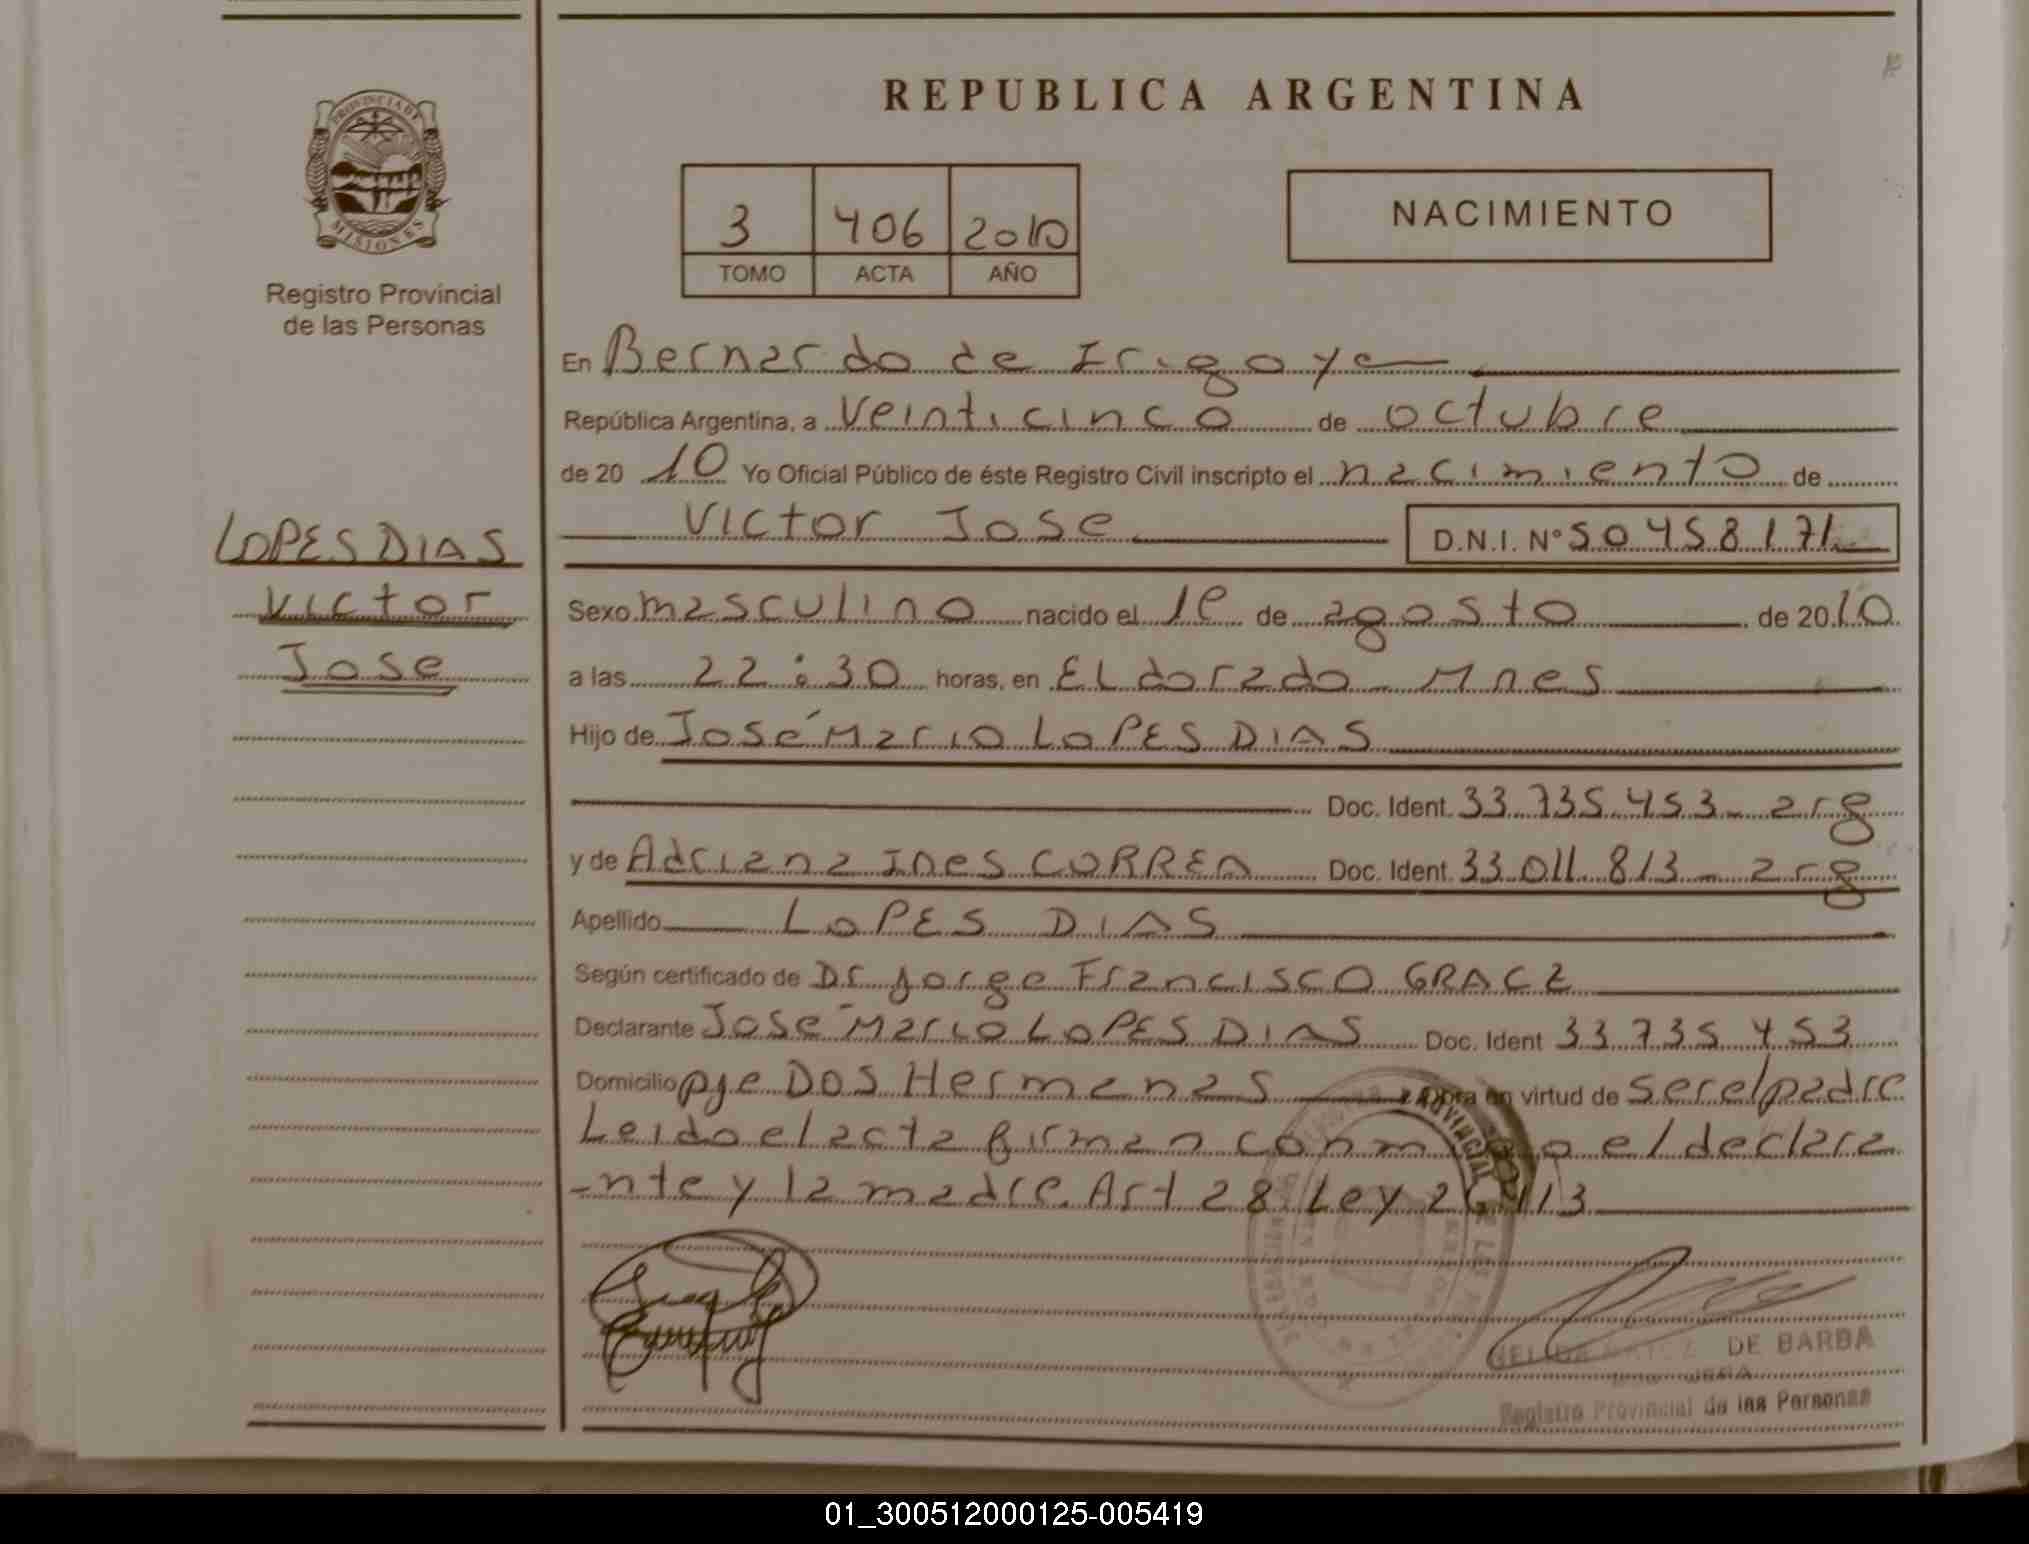 REPUBLICA ARGENTINA
PROVINCIA DE
MISIONES
Registro Provincial
de las Personas
3 406 2010
TOMO ACTA AÑO
NACIMIENTO
En Bernardo de Irigoye
República Argentina, a veinticinco de octubre
de 20 10 Yo Oficial Público de éste Registro Civil inscripto el nacimiento de
Victor Jose D.N.I. N° 50458171
LOPES DIAS
Victor
Jose
Sexo masculino nacido el 1º de agosto de 2010
a las 22:30 horas, en Eldorado Mnes
Hijo de José Mario LOPES DIAS
Doc. Ident. 33.735.453 - arg
y de Adriana Ines CORREA Doc. Ident. 33.011.813 - arg
Apellido LOPES DIAS
Según certificado de Dr Jorge Francisco GRACZ
Declarante José Mario LOPES DIAS Doc. Ident 33 735 453
Domicilio pje Dos Hermanas Obra en virtud de ser el padre
Leido el acta firman conmigo el declara
-nte y la madre. Art 28 Ley 26413
DE BARBA
JEFA
Registro Provincial de las Personas
01_300512000125-005419